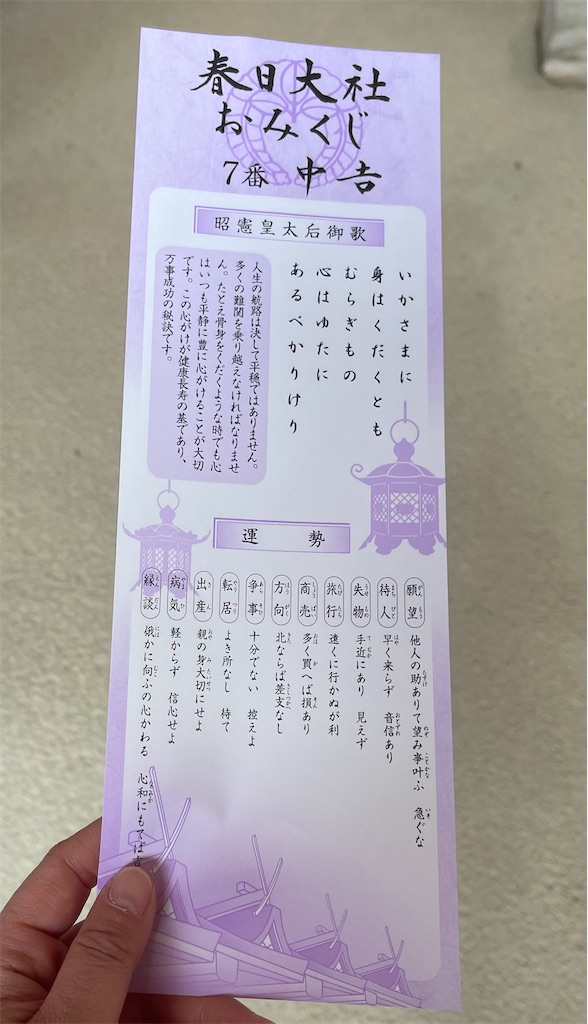 春日大社
おみくじ
7番 中吉
昭憲皇太后御歌
いかさまに
身はくだくとも
むらぎもの
心はゆたに
あるべかりけり
人生の航路は決して平穏ではありません。
多くの難関を乗り越えなければなりませ
ん。たとえ骨身をくだくような時でも心
はいつも平静に豊に心がけることが大切
です。この心がけが健康長寿の基であり、
万事成功の秘訣です。
運 勢
願望 他人の助ありて望み事叶ふ 急ぐな
待人 早く来らず 音信あり
失物 手近にあり 見えず
旅行 遠くに行かぬが利
商売 多く買へば損あり
方向 北ならば差支なし
争事 十分でない 控えよ
転居 よき所なし 待て
出産 親の身大切にせよ
病気 軽からず 信心せよ
縁談 俄かに向ふの心かわる 心和にもてば吉